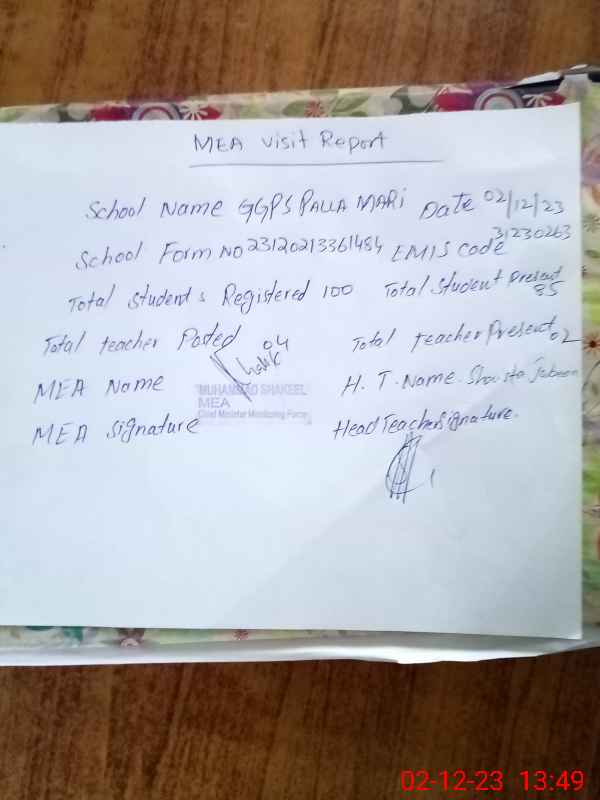 MEA Visit Report
School Name GGPS PALLA MARI Date 02/12/23
School Form No 23120213361484 EMIS Code 31230263
Total Students Registered 100 Total Student Present 85
Total teacher Posted 04 Total teacher Present 02
MEA Name H. T. Name. Shaista Jabeen
MUHAMMAD SHAKEEL
MEA
Chief Minister Monitoring Force
MEA Signature Head Teacher Signature.
02-12-23 13:49